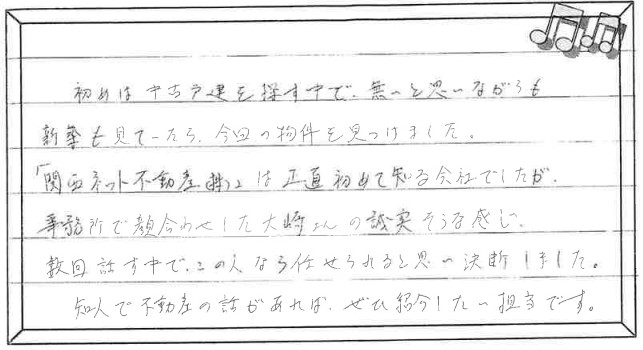 初めは中古戸建を探す中で、無いと思いながらも
新築も見ていたら、今回の物件を見つけました。
「関西ネット不動産㈱」は正直初めて知る会社でしたが、
事務所で顔合わせした大崎さんの誠実そうな感じ、
数回話す中で、この人なら任せられると思い決断しました。
知人で不動産の話があれば、ぜひ紹介したい担当です。